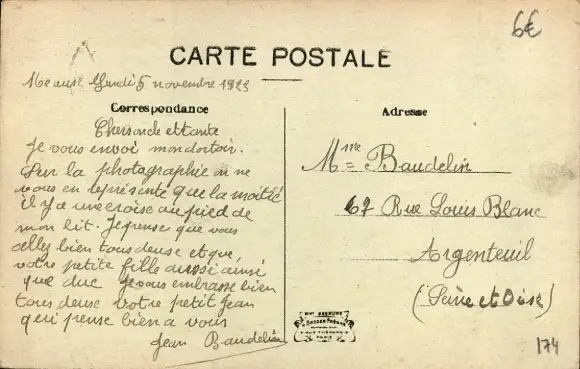 6€
CARTE POSTALE
Meaux Lundi 5 novembre 1923
Correspondance
Cher oncle et tante
Je vous envoi mon dortoir.
Sur la photographie on ne
vous en représenté que la moitié
il y a une croise au pied de
mon lit. Je pense que vous
allez bien tous deuse et que
votre petite fille aussi ainsi
que duc Je vous embrasse bien
tous deuse votre petit Jean
qui pense bien a vous
Jean Baudelin
Adresse
Mme Baudelin
67 Rue Louis Blanc
Argenteuil
(Seine et Oise)
PARIS
174